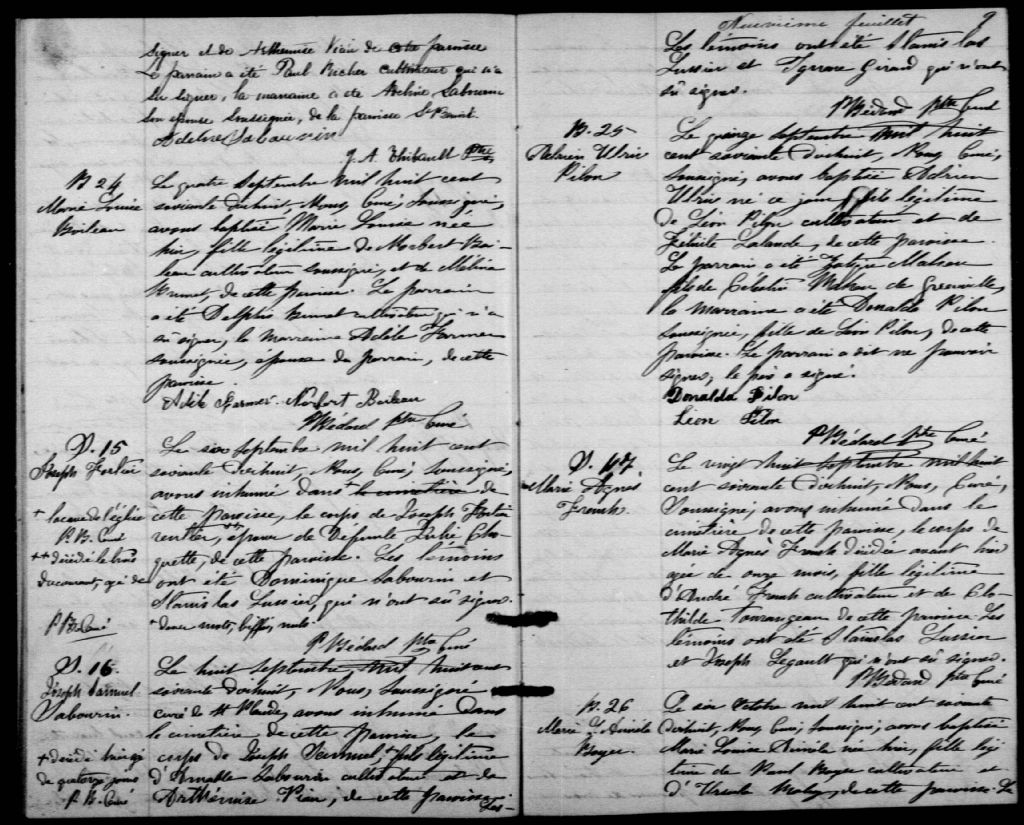 signer et de Arthemise Viau de cette paroisse
Le parrain a été Paul Richer cultivateur qui n'a
su signer, la marraine a été Adeline Sabourin
son épouse soussignée, de la paroisse St Benoit.
Adeline Sabourin
J. A. Thibault Ptre
B 24
Marie Louise
Boileau
Le quatre Septembre mil huit cent
soixante dixhuit, Nous, Curé, soussigné,
avons baptisé Marie Louise née
hier, fille légitime de Norbert Boi-
leau cultivateur soussigné, et de Mélina
Brunet, de cette paroisse. Le parrain
a été Delphis Brunet qui n'a
su signer, la marraine Adèle Farmer
soussignée, épouse du parrain, de cette
paroisse.
Adèle Farmer. Norbert Boileau
P Bédard Ptre Curé
S. 15
Joseph Fortier
+ la cave de l'église
P. B. Curé
++ décédé le trois
du courant, agé de
P. B. Curé
Le six Septembre mil huit cent
soixante dixhuit, Nous, Curé, soussigné,
avons inhumé dans + le cimetière de
cette paroisse, le corps de Joseph Fortier
rentier, ++ époux de Défunte Julie Cho-
quette, de cette paroisse. Les témoins
ont été Dominique Sabourin et
Stanislas Lussier, qui n'ont su signer.
+ deux mots biffés nuls.
P Bédard Ptre Curé
S. 16
Joseph Samuel
Sabourin.
+ décédé hier agé
de quatorze jours
P. B. Curé
Le huit septembre mil huit cent
soixante dixhuit, Nous, soussigné
curé de St Placide, avons inhumé dans
le cimetière de cette paroisse, le
corps de Joseph Samuel + fils légitime
d'Amable Sabourin cultivateur et de
Arthémise Viau, de cette paroisse. Les-
Neuvième feuillet 9
Les témoins ont été Stanislas
Lussier et Ignace Girard qui n'ont
su signer.
P Bédard Ptre Curé
B. 25
Adrien Ulric
Pilon
Le quinze septembre mil huit
cent soixante dixhuit, Nous, Curé,
soussigné, avons baptisé Adrien
Ulric né ce jour, fils légitime
de Léon Pilon cultivateur et de
Zélie Lalande, de cette paroisse.
Le parrain a été Maheu
fils de Célestin Maheu de Grenville,
la marraine a été Donalda Pilon
soussignée, fille de Léon Pilon, de cette
paroisse. Le parrain a dit ne pouvoir
signer; le père a signé.
Donalda Pilon
Léon Pilon
P Bédard Ptre Curé
S. 17.
Marie Agnes
French.
Le vingt huit septembre mil huit
cent soixante dixhuit, Nous, Curé,
Soussigné, avons inhumé dans le
cimetière de cette paroisse, le corps de
Marie Agnes French décédée avant hier
agée de onze mois, fille légitime
d'André French cultivateur et de Clo-
thilde Tourangeau de cette paroisse. Les
témoins ont été Stanislas Lussier
et Joseph Legault qui n'ont su signer.
P Bédard Ptre Curé
B. 26
Marie L. Aurile
Boyer
Le six Octobre mil huit cent soixante
dixhuit, Nous, Curé, soussigné, avons baptisé
Marie Louise née hier, fille légi
time de Paul Boyer cultivateur et
d'Ursule, de cette paroisse. Le